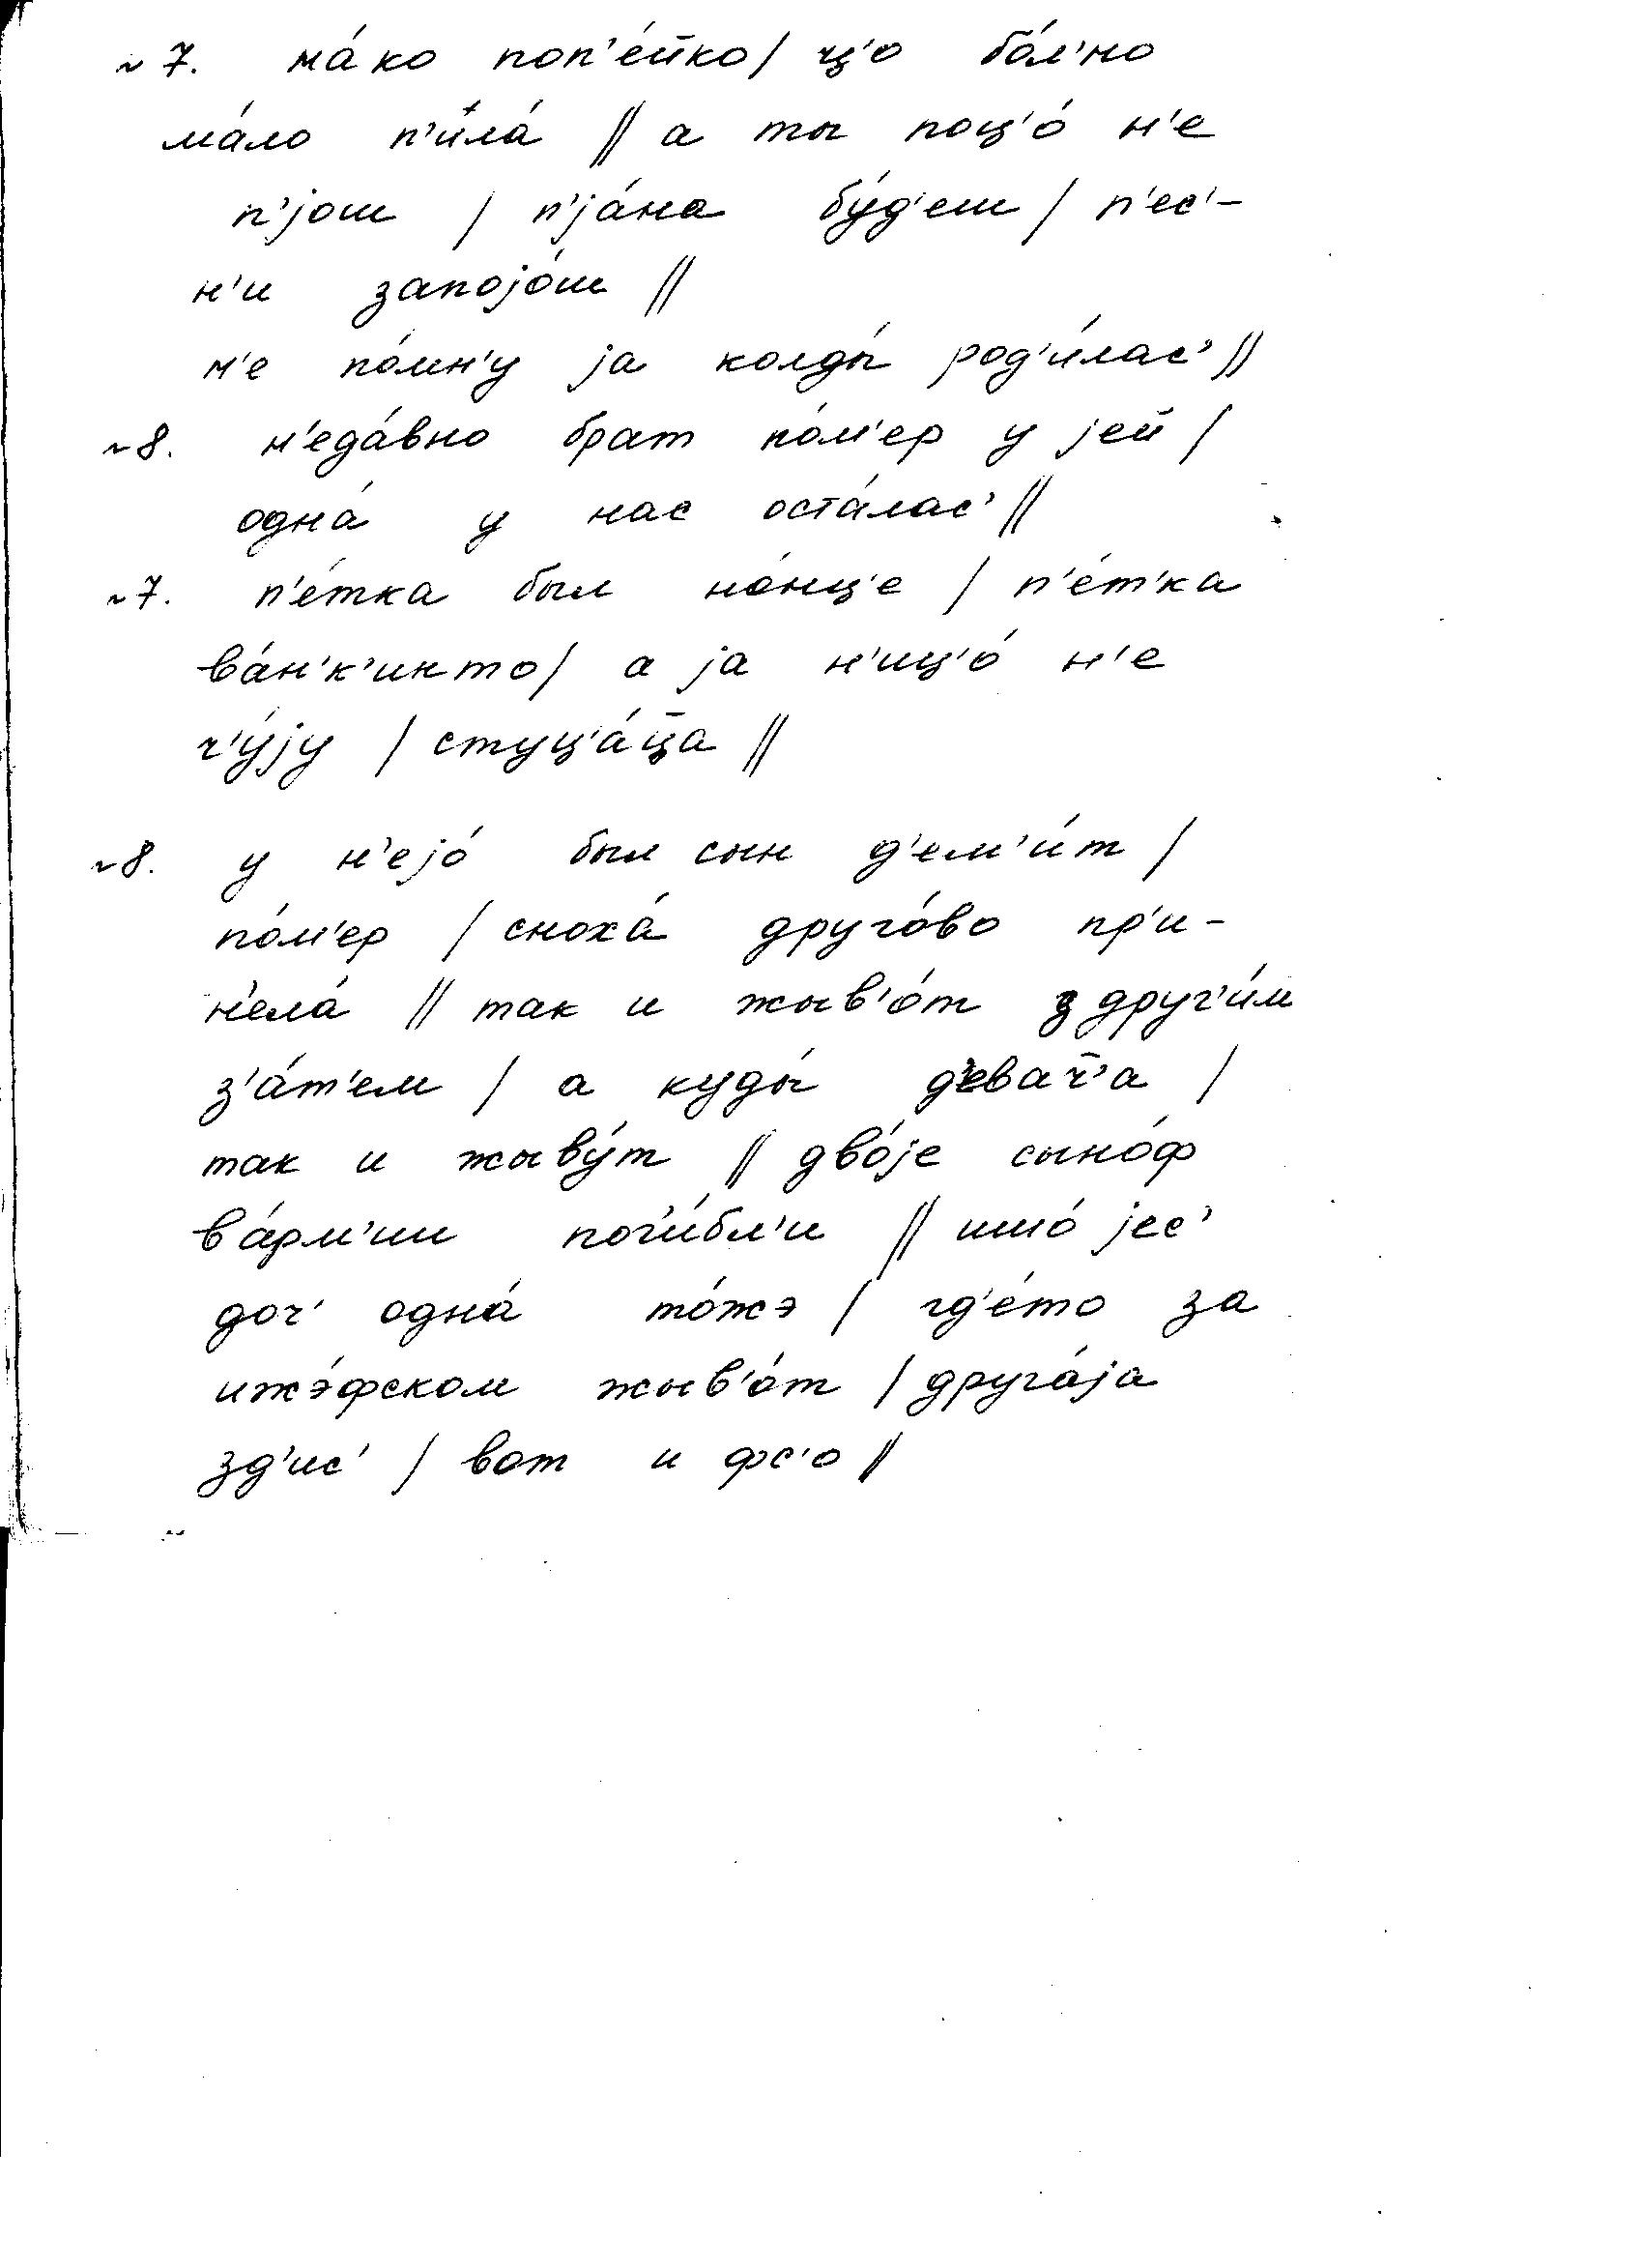 ~7. на́ко поп'е́йко/ ц'о бо́л'но
ма́ло п'и́ла́ // а ты поц'о́ н'е
п'jош / п'jа́на бу́д'еш / п'ес'-
н'и запоjо́ш //
н'е по́мн'у jа колды́ род'и́лас' //
~8. н'еда́вно брат по́м'ер у jей /
одна́ у нас оста́лас' //
~7. п'е́тка был но́нц'е / п'е́т'ка
ва́н'к'инто/ а jа н'иц'о́ н'е
ч'у́jу / стуц'а́ц̄а //
~8. у н'еjо́ был сын д'ем'и́т /
по́м'ер / сноха́ друго́во пр'и-
н'ела́ // так и жыв'о́т з друг'и́м
з'а́т'ем / а куды́ д'евач̄'а /
так и жыву́т // дво́jе сыно́ф
ва́рм'ии пог'и́бл'и // ишо́ jес'
доч' одна́ то́жэ / гд'е́то за
ижэ́фском жыв'о́т / друга́jа
зд'ис' / вот и фс'о //